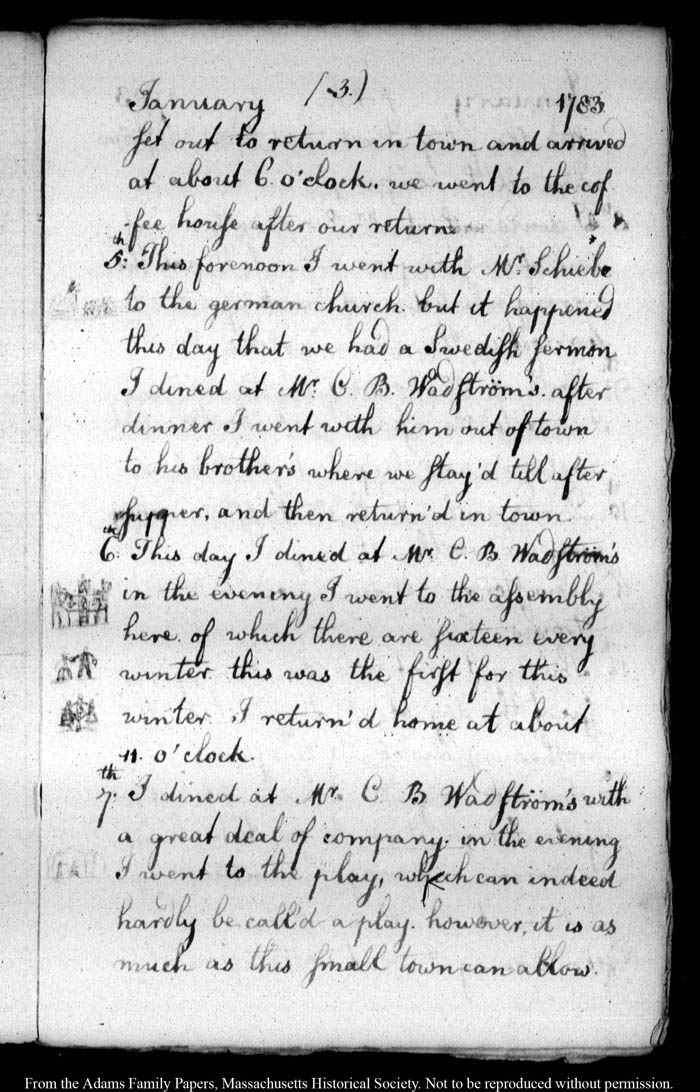 January (3.) 1783
set out to return in town and arrived
at about 6. o'clock. we went to the cof
fee house after our return.
5:th This forenoon I went with Mr. Schiebe
to the german church. but it happened
this day that we had a Swedish sermon
I dined at Mr. C. B. Wadström's. after
dinner I went with him out of town
to his brother's where we stay'd till after
supper, and then return'd in town
6:th This day I dined at Mr. C. B. Wadström's
in the evening I went to the assembly
here. of which there are sixteen every
winter. this was the first for this
winter. I return'd home at about
11. o'clock.
7.th I dined at Mr. C. B Wadström's with
a great deal of company. in the evening
I went to the play, which can indeed
hardly be call'd a play. however, it is as
much as this small town can allow.
From the Adams Family Papers, Massachusetts Historical Society. Not to be reproduced without permission.